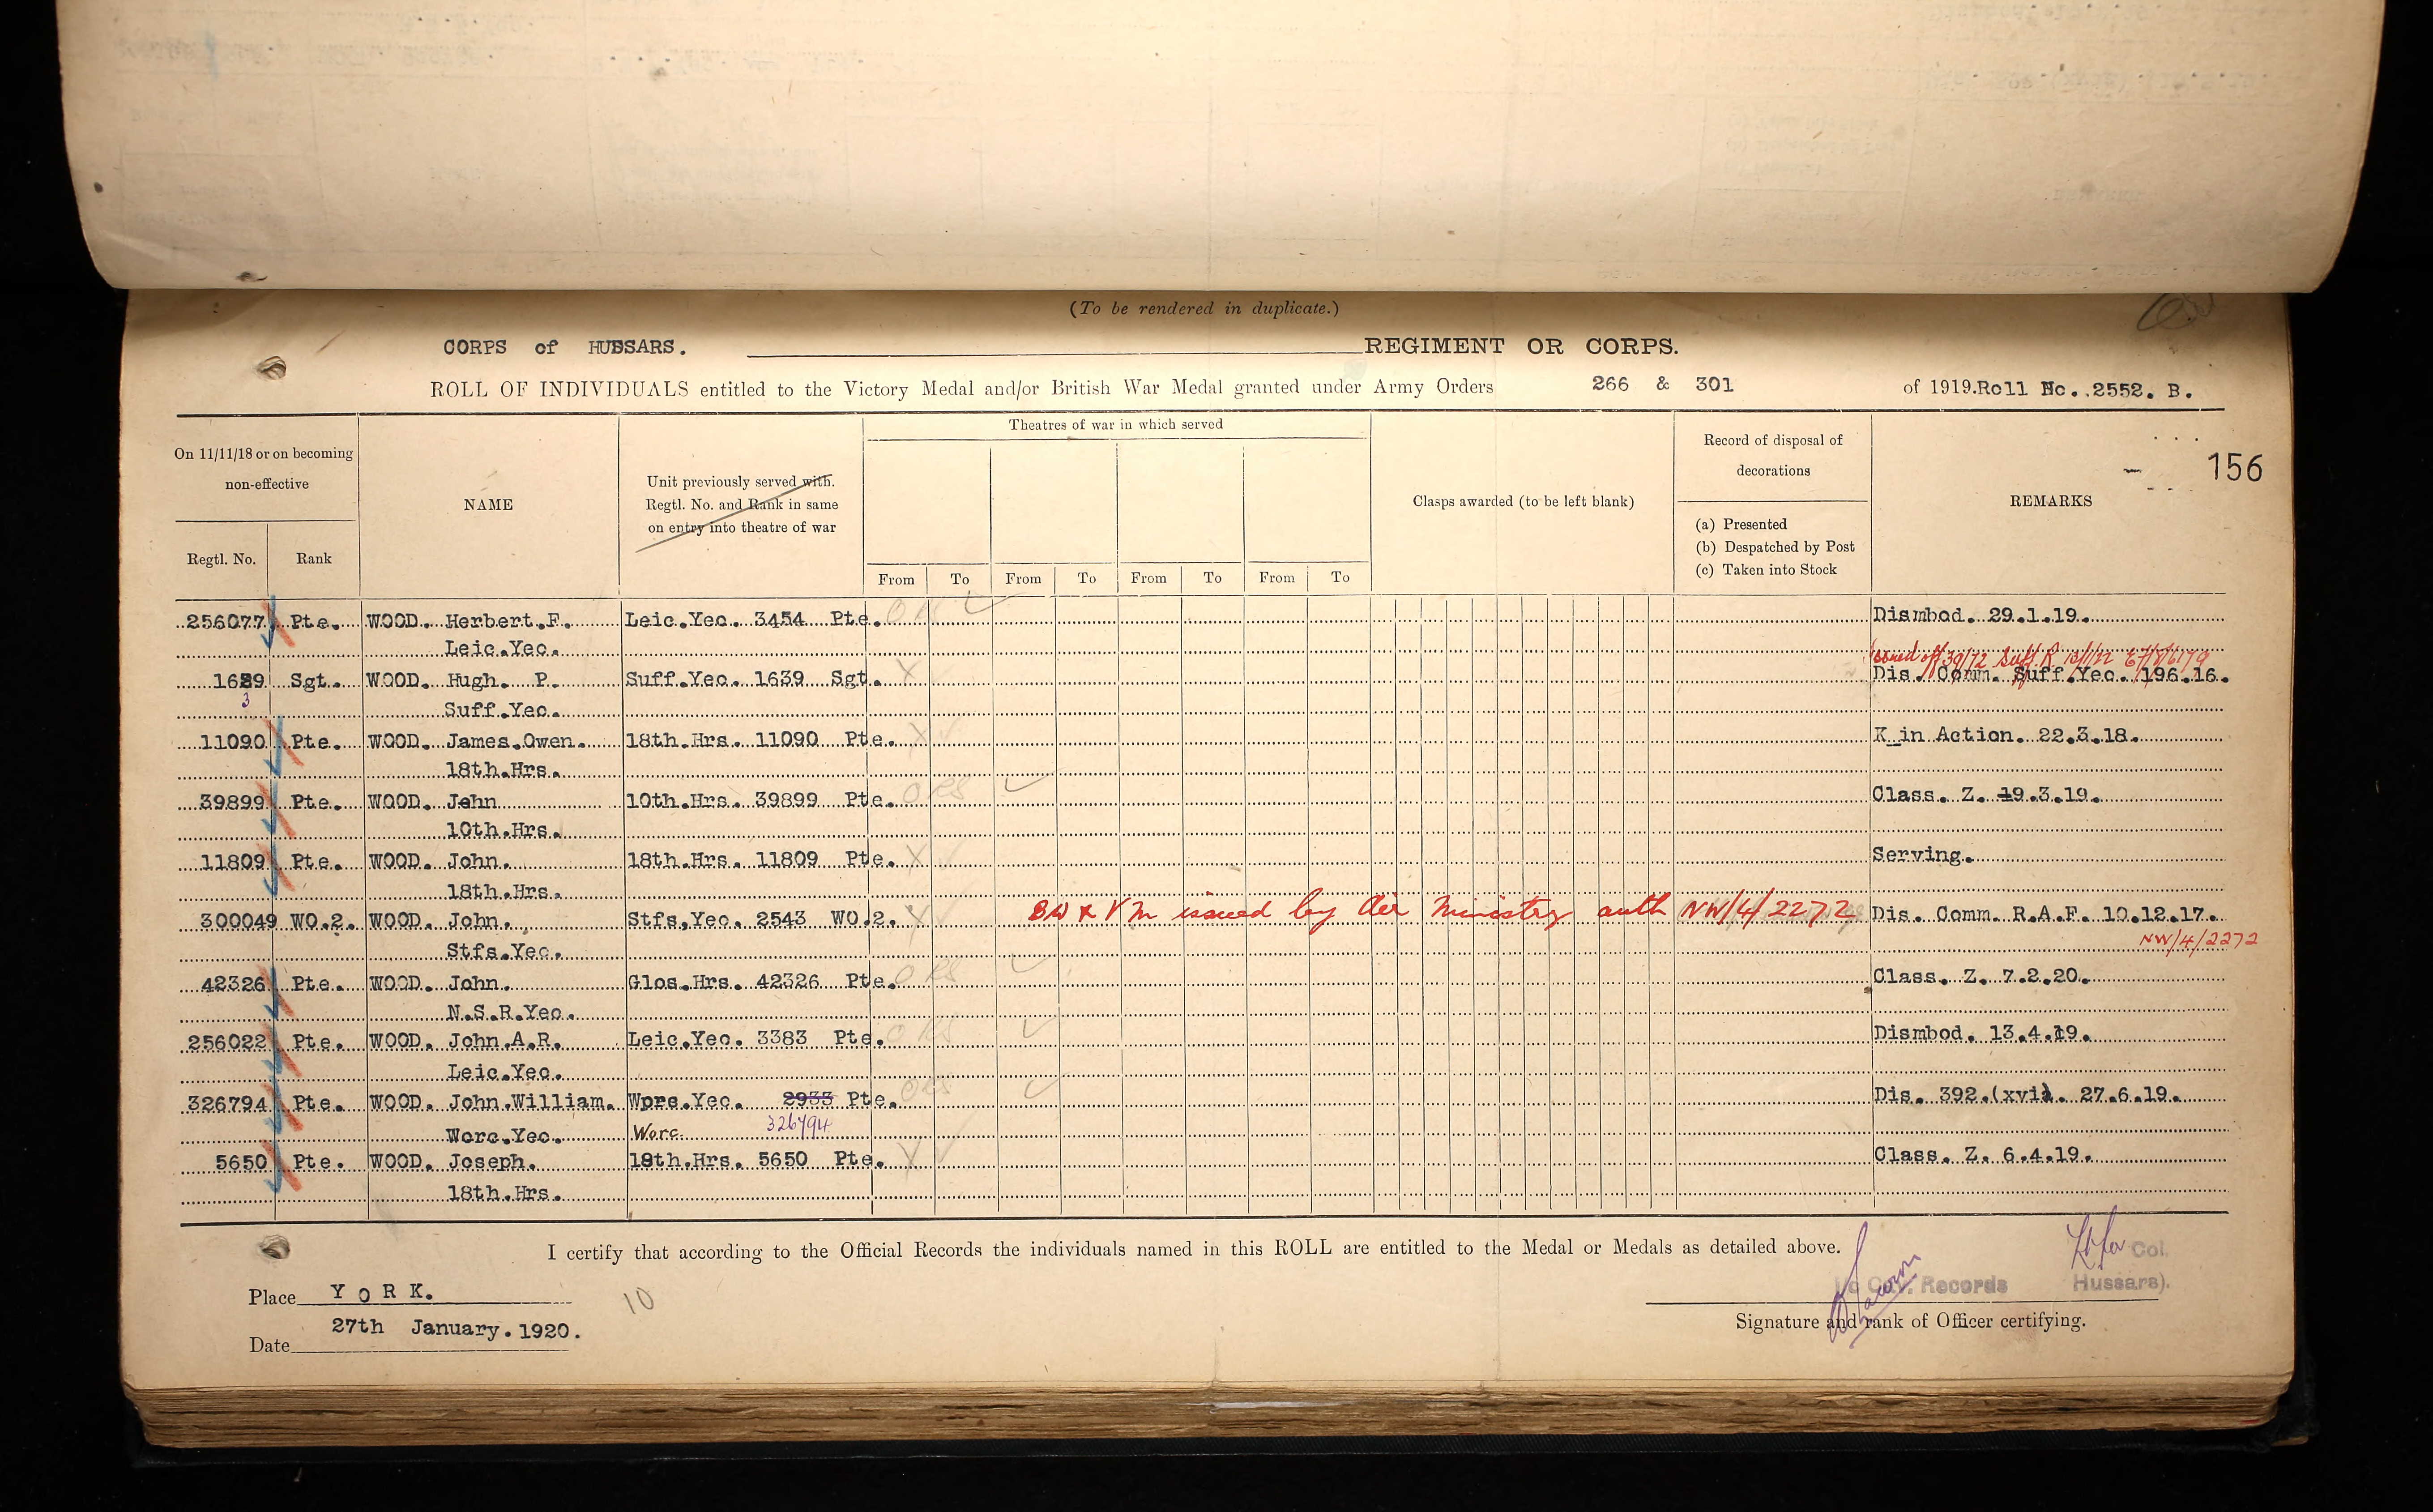 (To be rendered in duplicate.)
CORPS of HUSSARS. REGIMENT OR CORPS.
ROLL OF INDIVIDUALS entitled to the Victory Medal and/or British War Medal granted under Army Orders 266 & 301 of 1919. Roll No. 2552. B.
156
On 11/11/18 or on becoming non-effective
Regtl. No.
Rank
NAME
Unit previously served with.
Regtl. No. and Rank in same
on entry into theatre of war
Theatres of war in which served
From To From To From To From To
Clasps awarded (to be left blank)
Record of disposal of
decorations
(a) Presented
(b) Despatched by Post
(c) Taken into Stock
REMARKS
256077 Pte. WOOD. Herbert.F. Leic.Yeo. 3454 Pte. Dismbod. 29.1.19.
Leic.Yeo.
Issued off 39/72 Suff. R
1689 Sgt. WOOD. Hugh. P. Suff.Yeo. 1639 Sgt. X Dis. Comm. Suff.Yeo. 196.16.
3
Suff.Yeo.
11090 Pte. WOOD. James.Owen. 18th.Hrs. 11090 Pte. X K_in Action. 22.3.18.
18th.Hrs.
39899 Pte. WOOD. John 10th.Hrs. 39899 Pte. ORS Class. Z. 19.3.19.
10th.Hrs.
11809 Pte. WOOD. John. 18th.Hrs. 11809 Pte. X Serving.
18th.Hrs.
300049 WO.2. WOOD. John. Stfs.Yeo. 2543 WO.2. X BW & VM issued by Air Ministry auth NW/4/2272 Dis. Comm. R.A.F. 10.12.17.
NW/4/2272
Stfs.Yeo.
42326 Pte. WOOD. John. Glos.Hrs. 42326 Pte. ORS Class. Z. 7.2.20.
N.S.R.Yeo.
256022 Pte. WOOD. John.A.R. Leic.Yeo. 3383 Pte. ORS Dismbod. 13.4.19.
Leic.Yeo.
326794 Pte. WOOD. John.William. Wors.Yeo. 2933 Pte. ORS Dis. 392.(xvi). 27.6.19.
Worc.Yeo. Worc. 326794
5650 Pte. WOOD. Joseph. 19th.Hrs. 5650 Pte. X Class. Z. 6.4.19.
18th.Hrs.
I certify that according to the Official Records the individuals named in this ROLL are entitled to the Medal or Medals as detailed above.
Col.
Records Hussars).
Place YORK.
10
Signature and rank of Officer certifying.
27th January. 1920.
Date